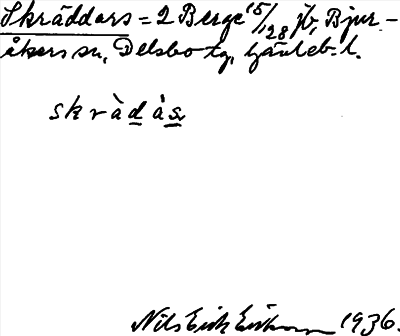 Skräddars = 2 Berge 15/128 jb, Bjur-
åkers sn, Delsbo tg, Gävleb. l.
skràdàs
Nils Erik Erikson 1936.